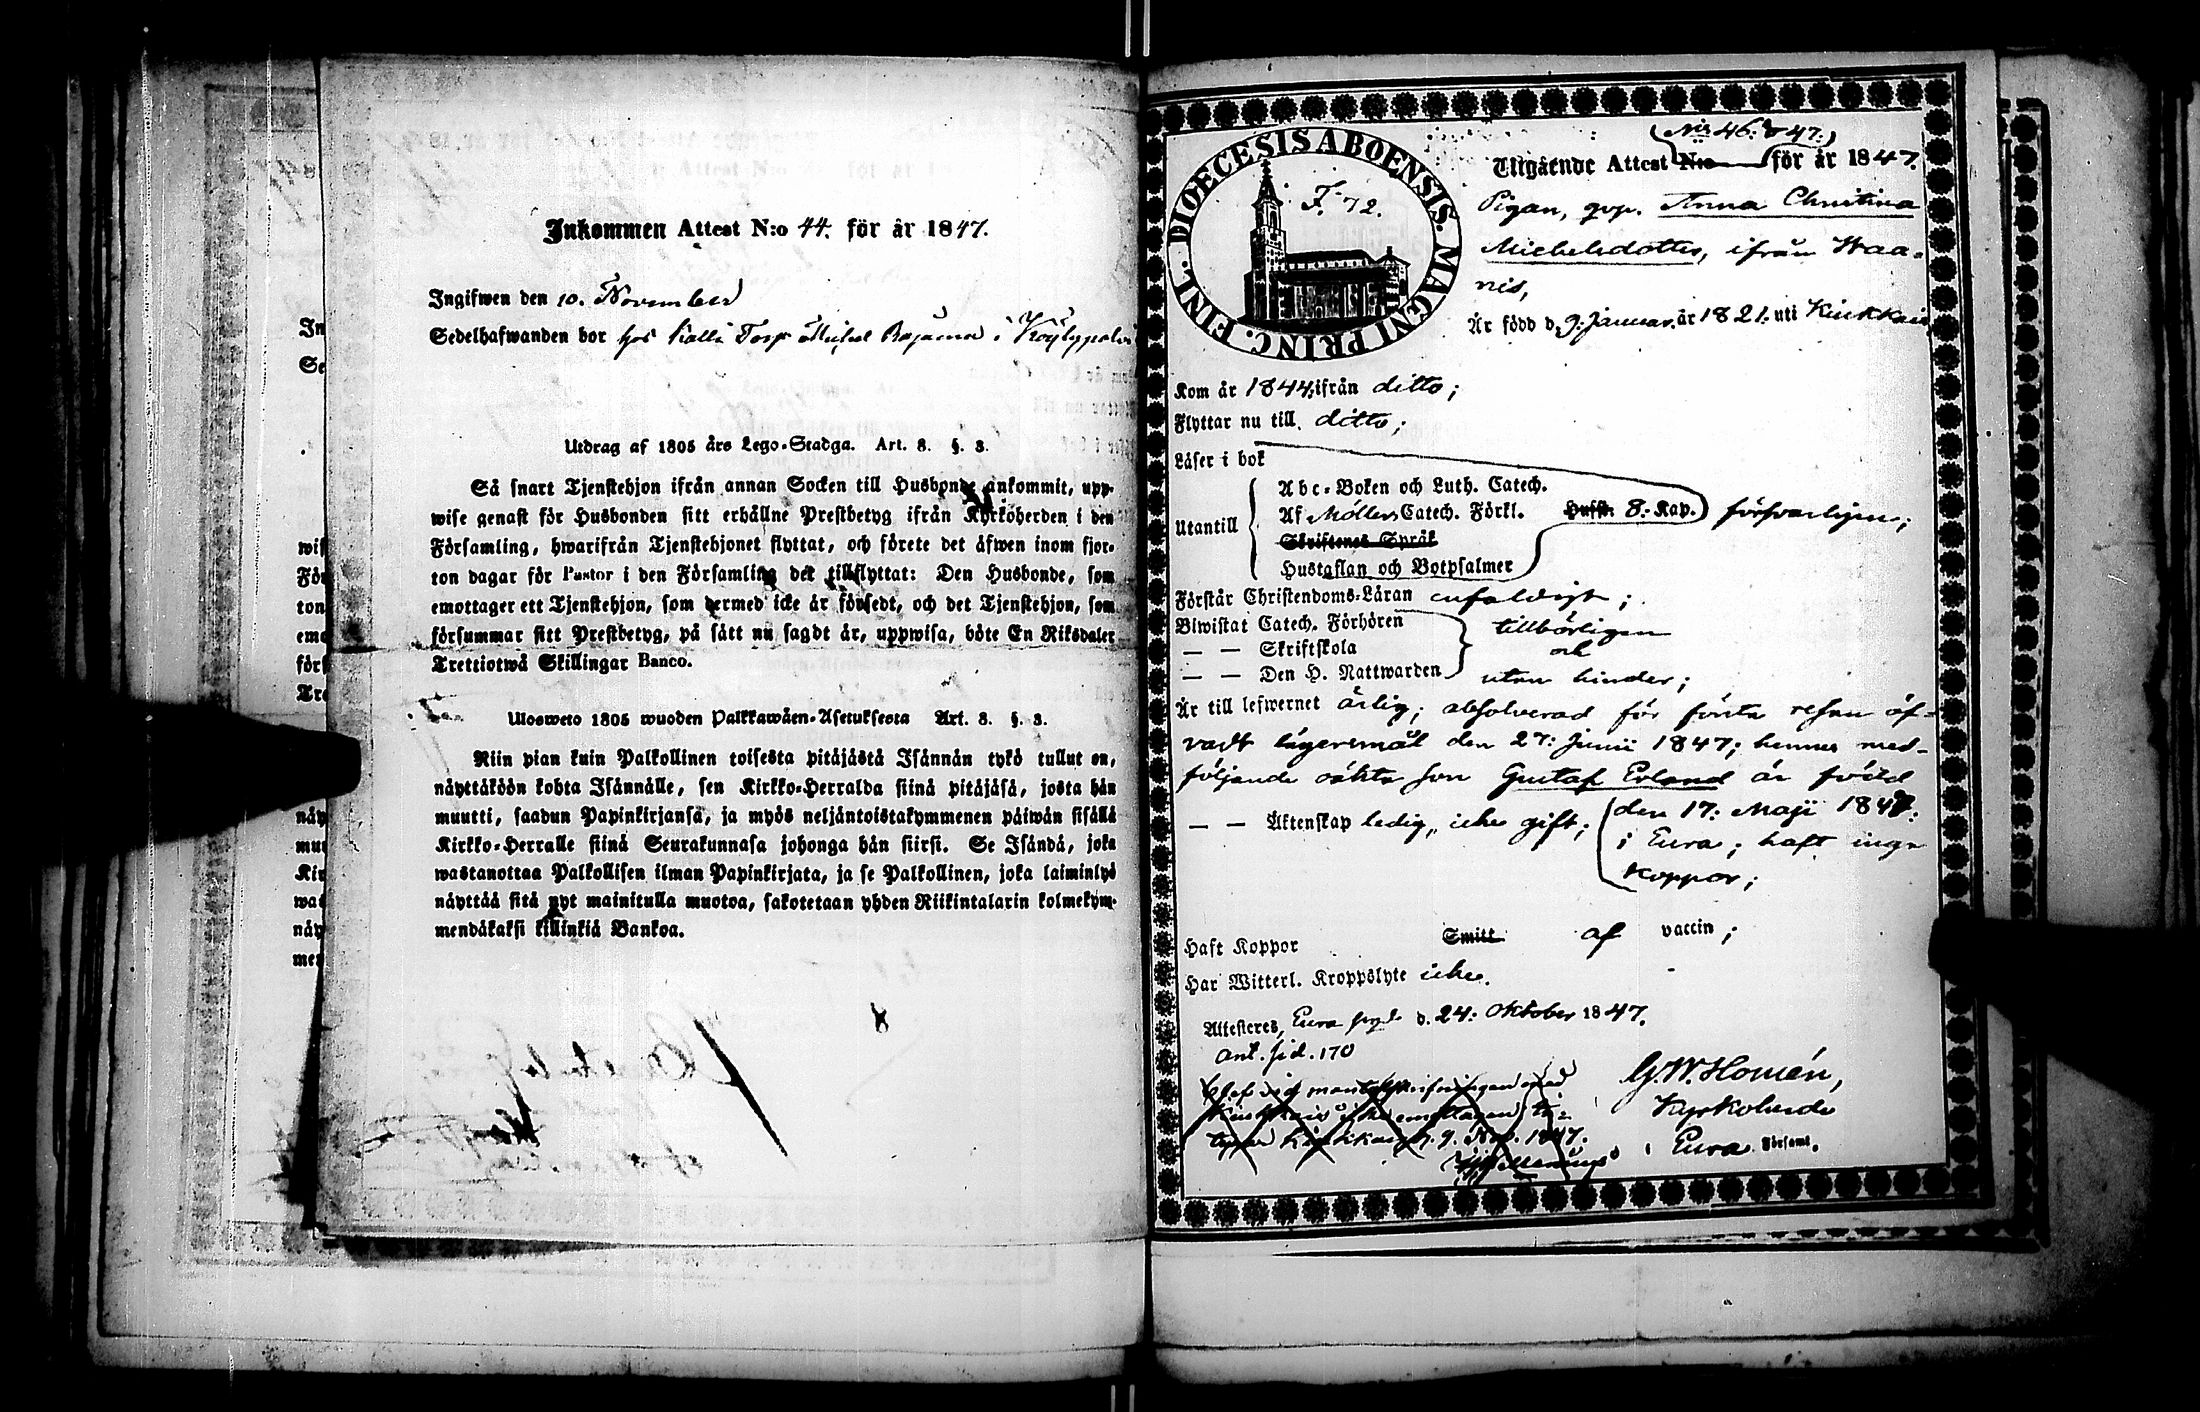 Inkommen Attest N:o 44. för år 1847.
Ingifwen den 10. November
Sedelhafwanden bor hos Kalli Torp Michel Bajama i Köylypolvi
Utdrag af 1805 års Lego-Stadga. Art. 8. §. 3.
Så snart Tjenstehjon ifrån annan Socken till Husbonde ankommit, upp-
wise genast för Husbonden sitt erhållne Prestbetyg ifrån Kyrkoherden i den
Församling, hwarifrån Tjenstehjonet flyttat, och förete det äfwen inom fjor-
ton dagar för Pastor i den Församling det tillflyttat: Den Husbonde, som
emottager ett Tjenstehjon, som dermed icke är försedt, och det Tjenstehjon, som
försummar sitt Prestbetyg, på sätt nu sagdt är, uppwisa, böte En Riksdaler
Trettiotwå Skillingar Banco.
Ulosweto 1805 wuoden Palkkawäen-Asetuksesta Art. 8. §. 3.
Niin pian kuin Palkollinen toisesta pitäjästä Isännän tykö tullut on,
näyttäköön kohta Isännälle, sen Kirkko-Herralda siinä pitäjäsä, josta hän
muutti, saadun Papinkirjansa, ja myös neljäntoistakymmenen päiwän sisällä
Kirkko-Herralle siinä Seurakunnasa johonga hän siirsi. Se Isändä, joka
wastanottaa Palkollisen ilman Papinkirjata, ja se Palkollinen, joka laiminlyö
näyttää sitä nyt mainitulla muotoa, sakotetaan yhden Riikintalarin kolmekym-
mendäkaksi killinkiä Bankoa.
DIOECESIS ABOENSIS. MAGNI PRINC. FINL.
F. 72.
(N:is 46: & 47:)
Utgående Attest N:o för år 1847.
Pigan, qvp. Anna Christina
Michelsdotter, ifrån Waa-
nis,
Är född d. 9. Januar. år 1821. uti Kiukkais
Kom år 1844: ifrån ditto;
Flyttar nu till ditto;
Läser i bok
Utantill
Abc-Boken och Luth. Catech.
Af Möllers Catech. Förkl. Hufst. 8: Kap. försvarligen;
Skriftenes Språk
Hustaflan och Botpsalmer
Förstår Christendoms-Läran enfaldigt;
Biwistat Catech. Förhören tillbörligen
— — Skriftskola och
— — Den H. Nattwarden utan hinder;
Är till lefwernet ärlig; absolverad för första resan öf-
vadt lägersmål den 27: Junii 1847; hennes med-
följande oäkta son Gustaf Erland är född
— — Äktenskap ledig, icke gift; den 17: Maji 1847:
i Eura; haft inga
koppor;
Haft Koppor Smitt af vaccin;
Har Witterl. Kroppslyte icke.
Attesteres, Eura pgd. d. 24: Oktober 1847.
Ant. sid. 170
G. W. Homén,
Kyrkoherde
i Eura Församl.